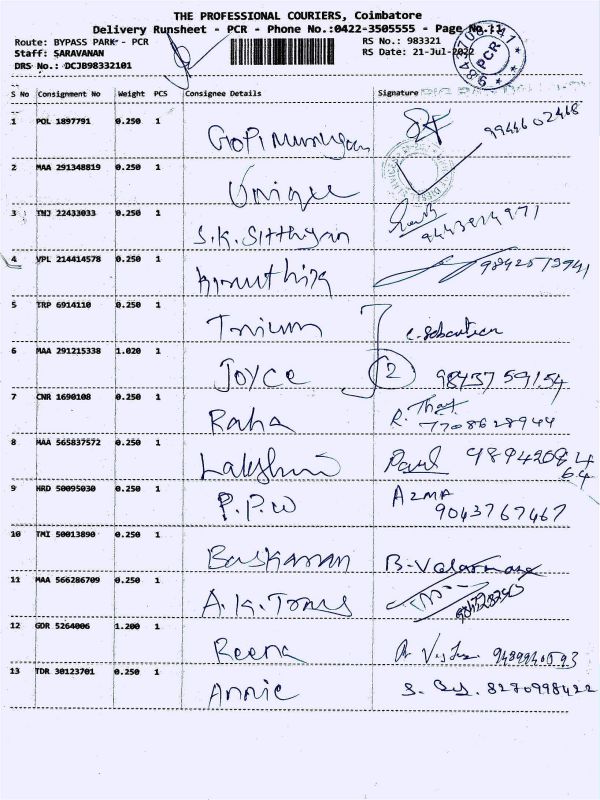 THE PROFESSIONAL COURIERS, Coimbatore
Delivery Runsheet - PCR - Phone No.:0422-3505555 - Page No.11
Route: BYPASS PARK - PCR
RS No.: 983321
Staff: SARAVANAN
RS Date: 21-Jul-2022
DRS No.: DCJB98332101
PCR
S No Consignment No Weight PCS Consignee Details Signature
1 POL 1897791 0.250 1 Gopi Murugan 9944602468
2 MAA 291348819 0.250 1 Unique
3 TNJ 22433033 0.250 1 S.K. Sitthyan
4 VPL 214414578 0.250 1 9842513941
5 TRP 6914110 0.250 1 Trium
6 MAA 291215338 1.020 1 Joyce 2 9843759154
7 CNR 1690108 0.250 1 Raha 7708628944
8 MAA 565837572 0.250 1 Lakshmi Paul
9 HRD 50095030 0.250 1 P.P.W AZMA
9043767467
10 TMI 50013890 0.250 1 Baskaran
11 MAA 566286709 0.250 1 A.K. Toms
12 GDR 5264006 1.200 1 Reena
13 TDR 30123701 0.250 1 Annie 8270998422